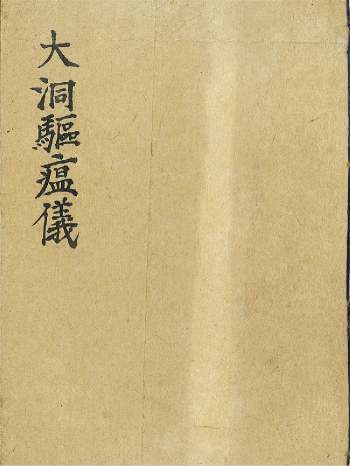 大洞驅瘟儀